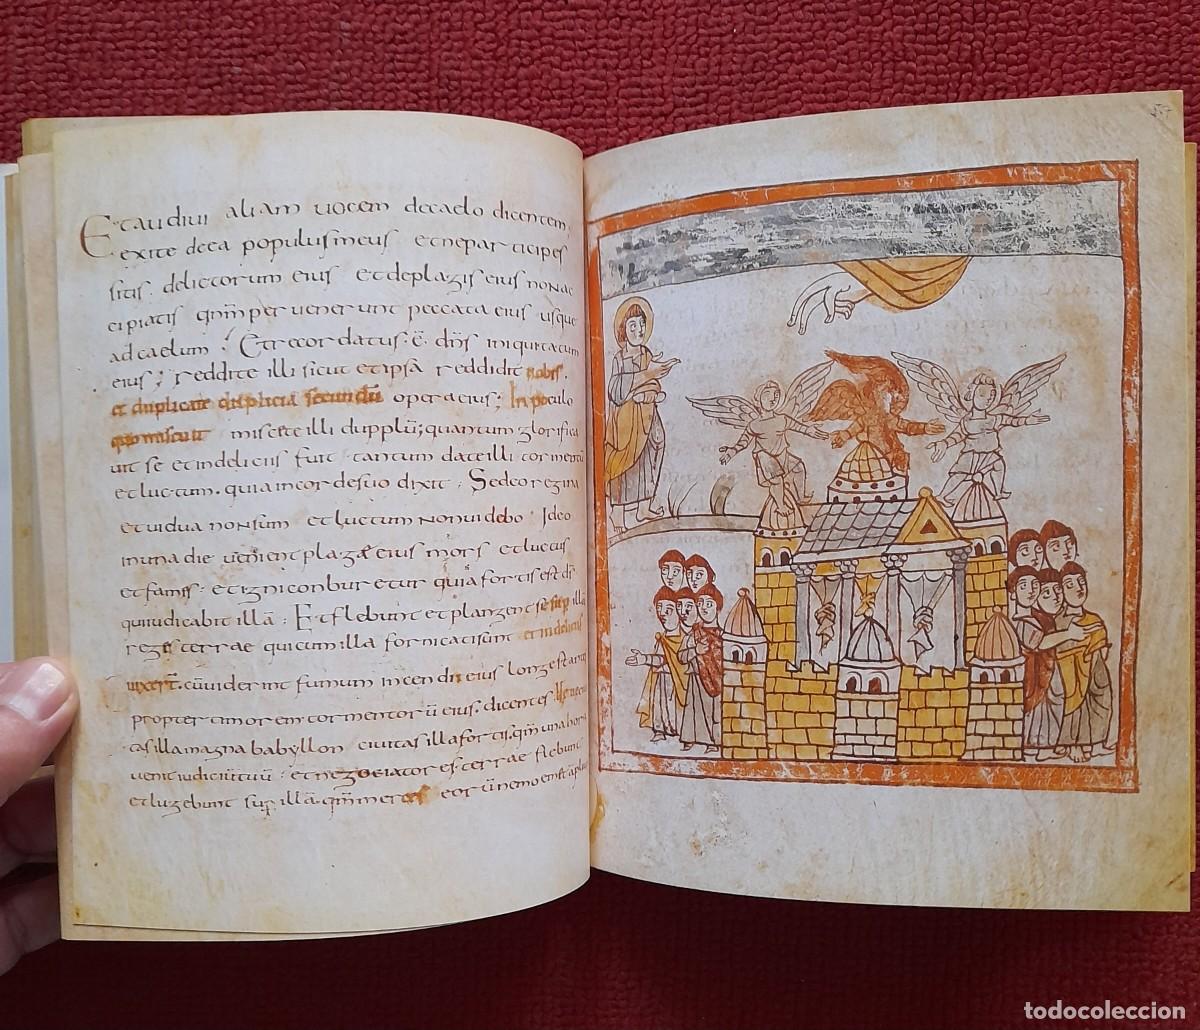 Et audivi aliam vocem decaelo dicentem,
exite deea populus meus et ne par ticipes
sitis. delictorum eius et deplagis eius non ac
cipiatis qm̄ per venerunt peccata eius usque
ad caelum; Et recor datus. ē dn̄s iniquitatum
eius; reddite illi sicut et ipsa reddidit vobis.
et duplicate duplicia secundū opera eius; In poculo
quo miscuit miscete illi dupplū; quantum glorifica
vit se et indeliciis fuit tantum date illi tormentū
et luctum. quia incor de suo dixit; Sedeo regina
et vidua non sum et luctum non videbo. Ideo
inuna die venient plagae eius mors et luctus
et famis; et igni conburetur quia fortis est d̄s
qui iudicabit illā; Et flebunt et plangent se sup illā
reges terrae qui cum illa fornicati sunt et in deliciis
vixerт̄. cū viderint fumum incendii eius longe stantes
propter timorem tormentorū eius. dicentes.
tas illa magna babyllon civitas illa fortis, qm̄ una hora
venit iudiciū tuū; et negociatores terrae flebunt
et lugebunt sup illā. qm̄ merces eorū nemo emet amplius
todocoleccion